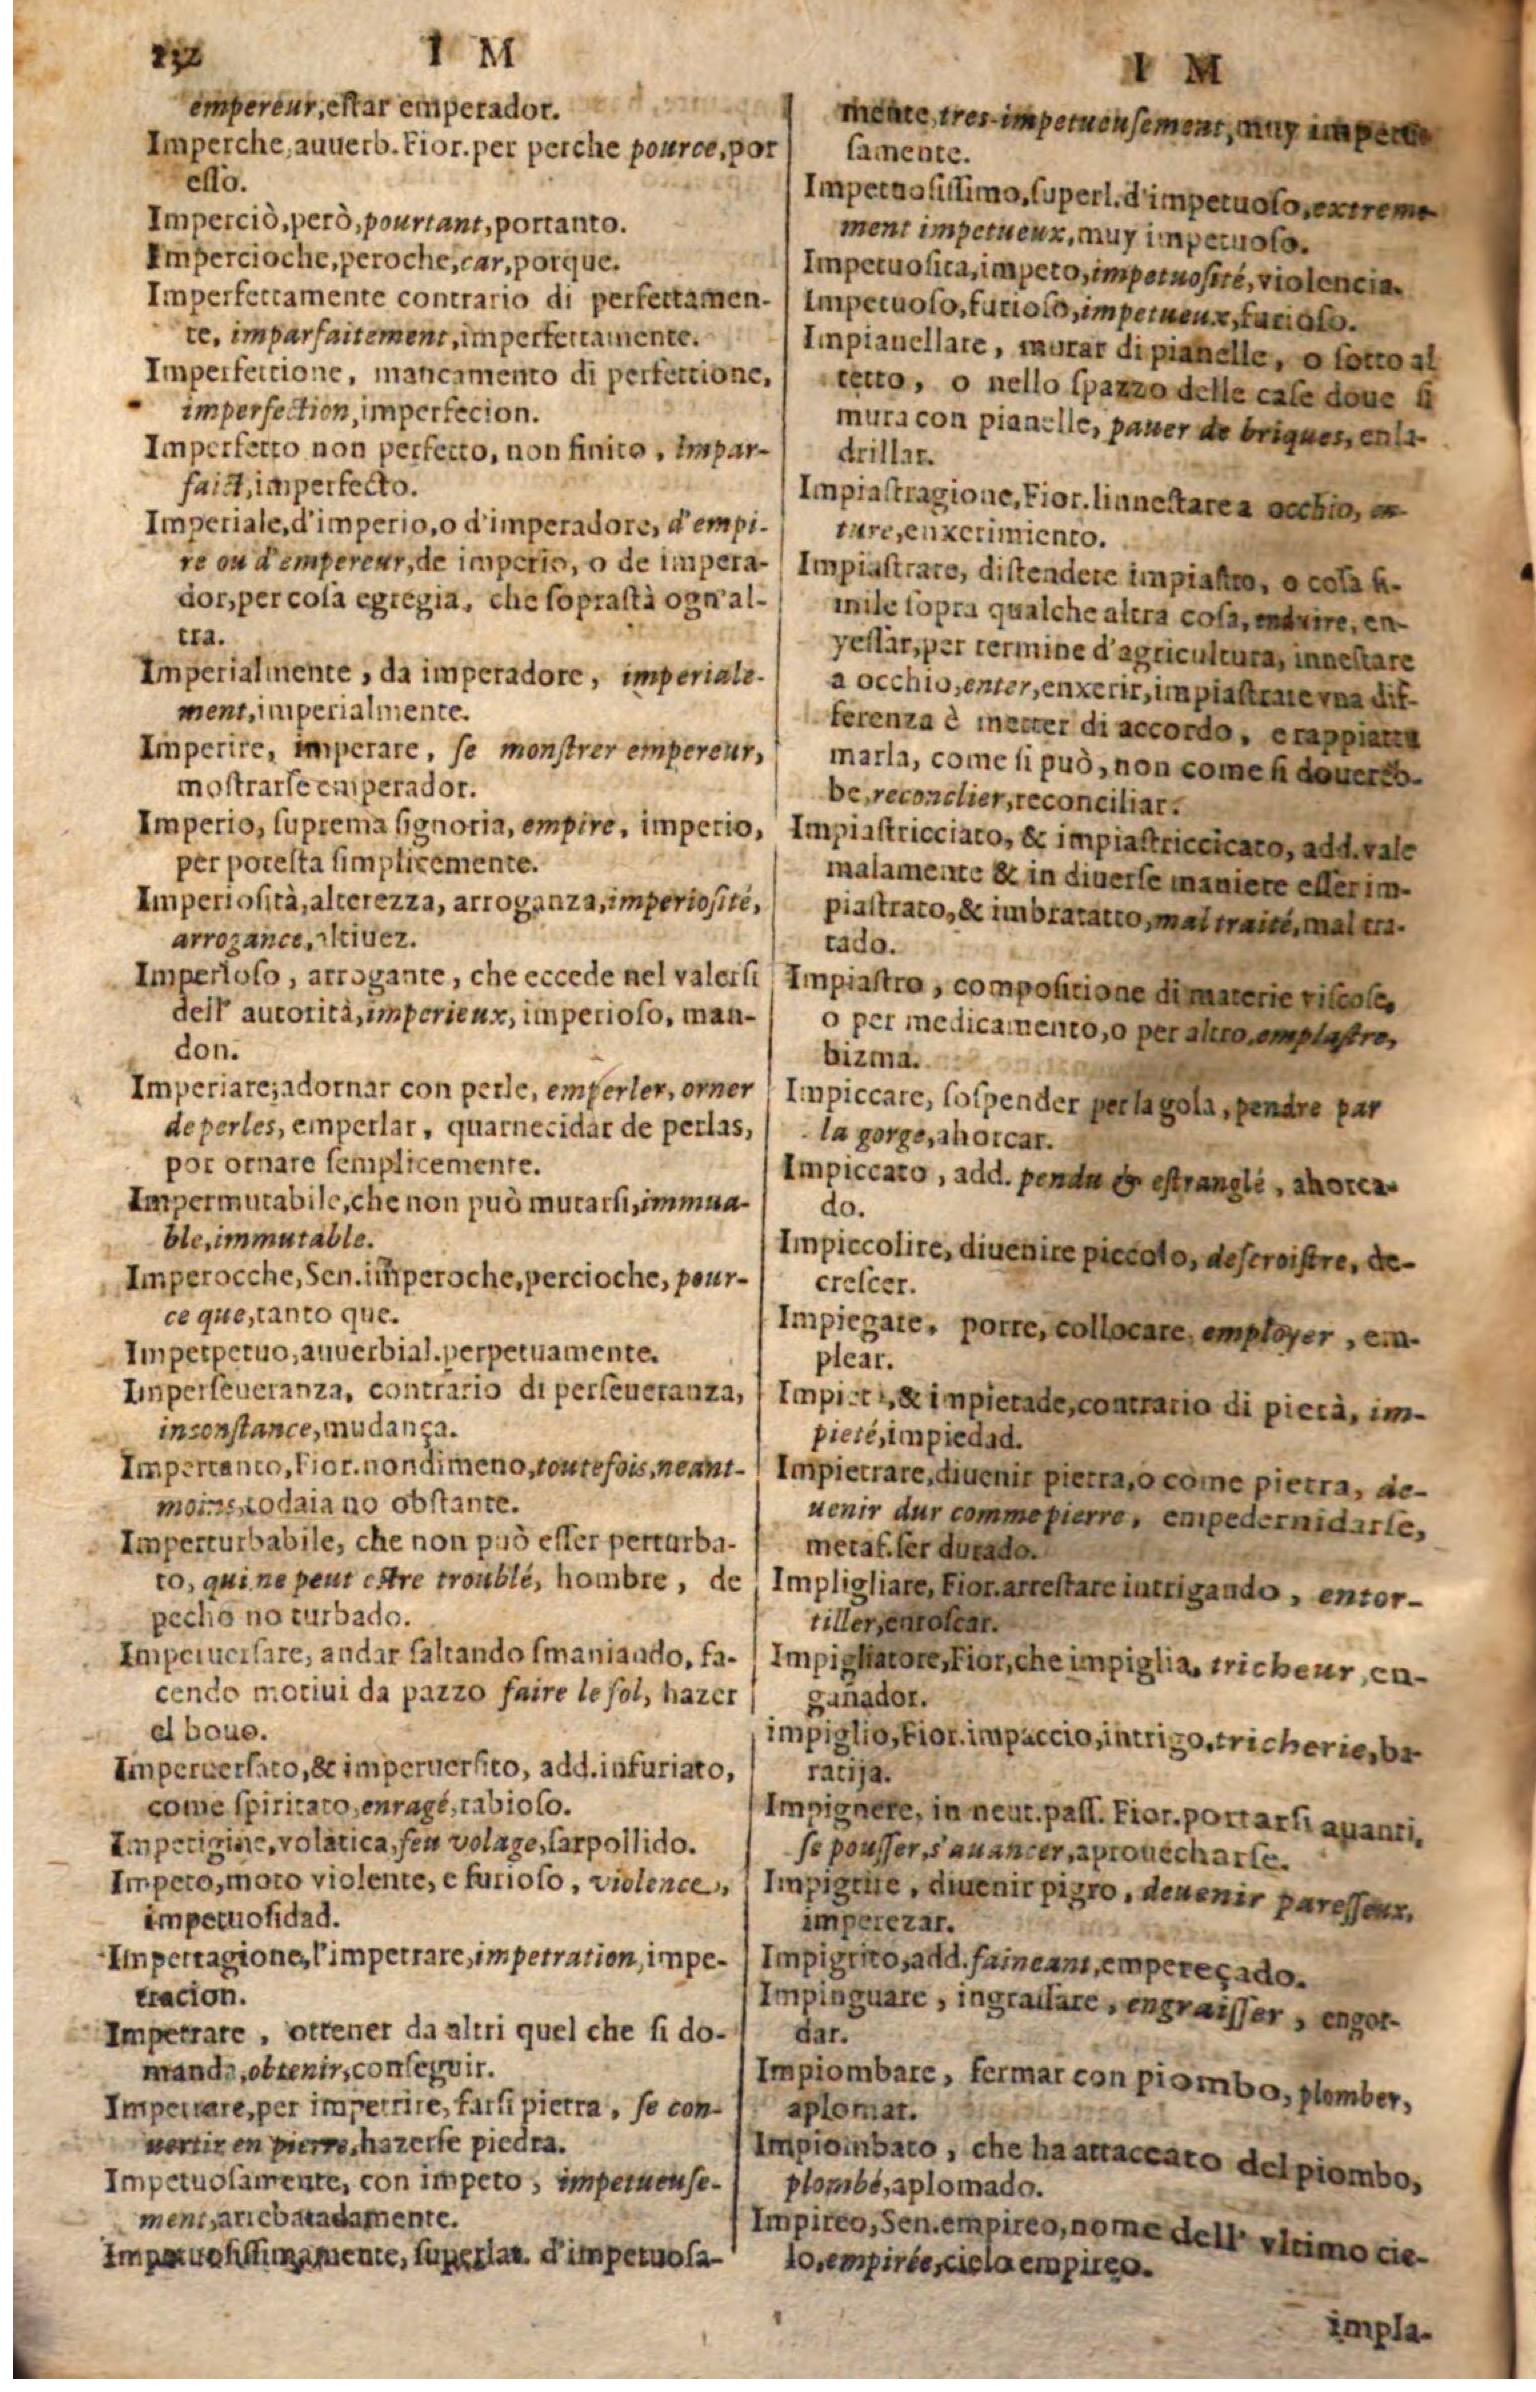 232
I M
empereur, eſtar emperador.
Imperche, auuerb. Fior. per perche pource, por
eſſo.
Imperciò, però, pourtant, portanto.
Impercioche, peroche, car, porque.
Imperfettamente contrario di perfettamen-
te, imparfaitement, imperfettamente.
Imperfettione, mancamento di perfettione,
imperfection, imperfecion.
Imperfetto non perfetto, non finito, impar-
faict, imperfecto.
Imperiale, d'imperio, o d'imperadore, d'empi-
re ou d'empereur, de imperio, o de impera-
dor, per coſa egregia, che ſopraſtà ogn'al-
tra.
Imperialmente, da imperadore, imperiale-
ment, imperialmente.
Imperire, imperare, ſe monſtrer empereur,
moſtrarſe emperador.
Imperio, ſuprema ſignoria, empire, imperio,
per poteſta ſimplicemente.
Imperioſità, alterezza, arroganza, imperioſité,
arrogance, altiuez.
Imperioſo, arrogante, che eccede nel valerſi
dell' autorità, imperieux, imperioſo, man-
don.
Imperiare, adornar con perle, emperler, orner
de perles, emperlar, quarnecidar de perlas,
por ornare ſemplicemente.
Impermutabile, che non può mutarſi, immua-
ble, immutable.
Imperocche, Sen. imperoche, percioche, pour-
ce que, tanto que.
Imperpetuo, auuerbial. perpetuamente.
Imperſeueranza, contrario di perſeueranza,
inconſtance, mudança.
Impertanto, Fior. nondimeno, toutefois, neant-
moins, todaia no obſtante.
Imperturbabile, che non può eſſer perturba-
to, qui ne peut eſtre troublé, hombre, de
pecho no turbado.
Imperuerſare, andar ſaltando ſmaniando, fa-
cendo motiui da pazzo faire le fol, hazer
el bouo.
Imperuerſato, & imperuerſito, add. infuriato,
come ſpiritato, enragé, rabioſo.
Impetigine, volatica, feu volage, ſarpollido.
Impeto, moto violente, e furioſo, violence,
impetuoſidad.
Impetragione, l'impetrare, impetration, impe-
tracion.
Impetrare, ottener da altri quel che ſi do-
manda, obtenir, conſeguir.
Impetrare, per impetrire, farſi pietra, ſe con-
uertir en pierre, hazerſe piedra.
Impetuoſamente, con impeto, impetueuſe-
ment, arrebatadamente.
Impetuoſiſſimamente, ſuperlat. d'impetuoſa-
I M
mente, tres-impetueuſement, muy impetuo
ſamente.
Impetuoſiſſimo, ſuperl. d'impetuoſo, extreme-
ment impetueux, muy impetuoſo.
Impetuoſita, impeto, impetuoſité, violencia.
Impetuoſo, furioſo, impetueux, furioſo.
Impianellare, murar di pianelle, o ſotto al
tetto, o nello ſpazzo delle caſe doue ſi
mura con pianelle, pauer de briques, enla-
drillar.
Impiaſtragione, Fior. l'inneſtare a occhio, en-
ture, enxerimiento.
Impiaſtrare, diſtendere impiaſtro, o coſa ſi-
mile ſopra qualche altra coſa, enduire, en-
yeſſar, per termine d'agricultura, inneſtare
a occhio, enter, enxerir, impiaſtrare vna dif-
ferenza è metter di accordo, e rappiatta
marla, come ſi può, non come ſi douereb-
be, reconclier, reconciliar.
Impiaſtricciato, & impiaſtriccicato, add. vale
malamente & in diuerſe maniere eſſer im-
piaſtrato, & imbratatto, mal traité, mal tra-
tado.
Impiaſtro, compoſitione di materie viſcoſe,
o per medicamento, o per altro, emplaſtre,
bizma.
Impiccare, ſoſpender per la gola, pendre par
la gorge, ahorcar.
Impiccato, add. pendu & eſtranglé, ahorca-
do.
Impiccolire, diuenire piccolo, deſcroiſtre, de-
creſcer.
Impiegare, porre, collocare, employer, em-
plear.
Impietà, & impietade, contrario di pietà, im-
pieté, impiedad.
Impietrare, diuenir pietra, o come pietra, de-
uenir dur comme pierre, empedernidarſe,
metaf. ſer durado.
Impligliare, Fior. arreſtare intrigando, entor-
tiller, enroſcar.
Impigliatore, Fior, che impiglia, tricheur, en-
gañador.
impiglio, Fior. impaccio, intrigo, tricherie, ba-
ratija.
Impignere, in neut. paſſ. Fior. portarſi auanti,
ſe pouſſer, s'auancer, aprouecharſe.
Impigrire, diuenir pigro, deuenir pareſſeux,
imperezar.
Impigrito, add. faineant, empereçado.
Impinguare, ingraſſare, engraiſſer, engor-
dar.
Impiombare, fermar con piombo, plomber,
aplomar.
Impiombato, che ha attaccato del piombo,
plombé, aplomado.
Impireo, Sen. empireo, nome dell' vltimo cie-
lo, empirée, cielo empireo.
impla-